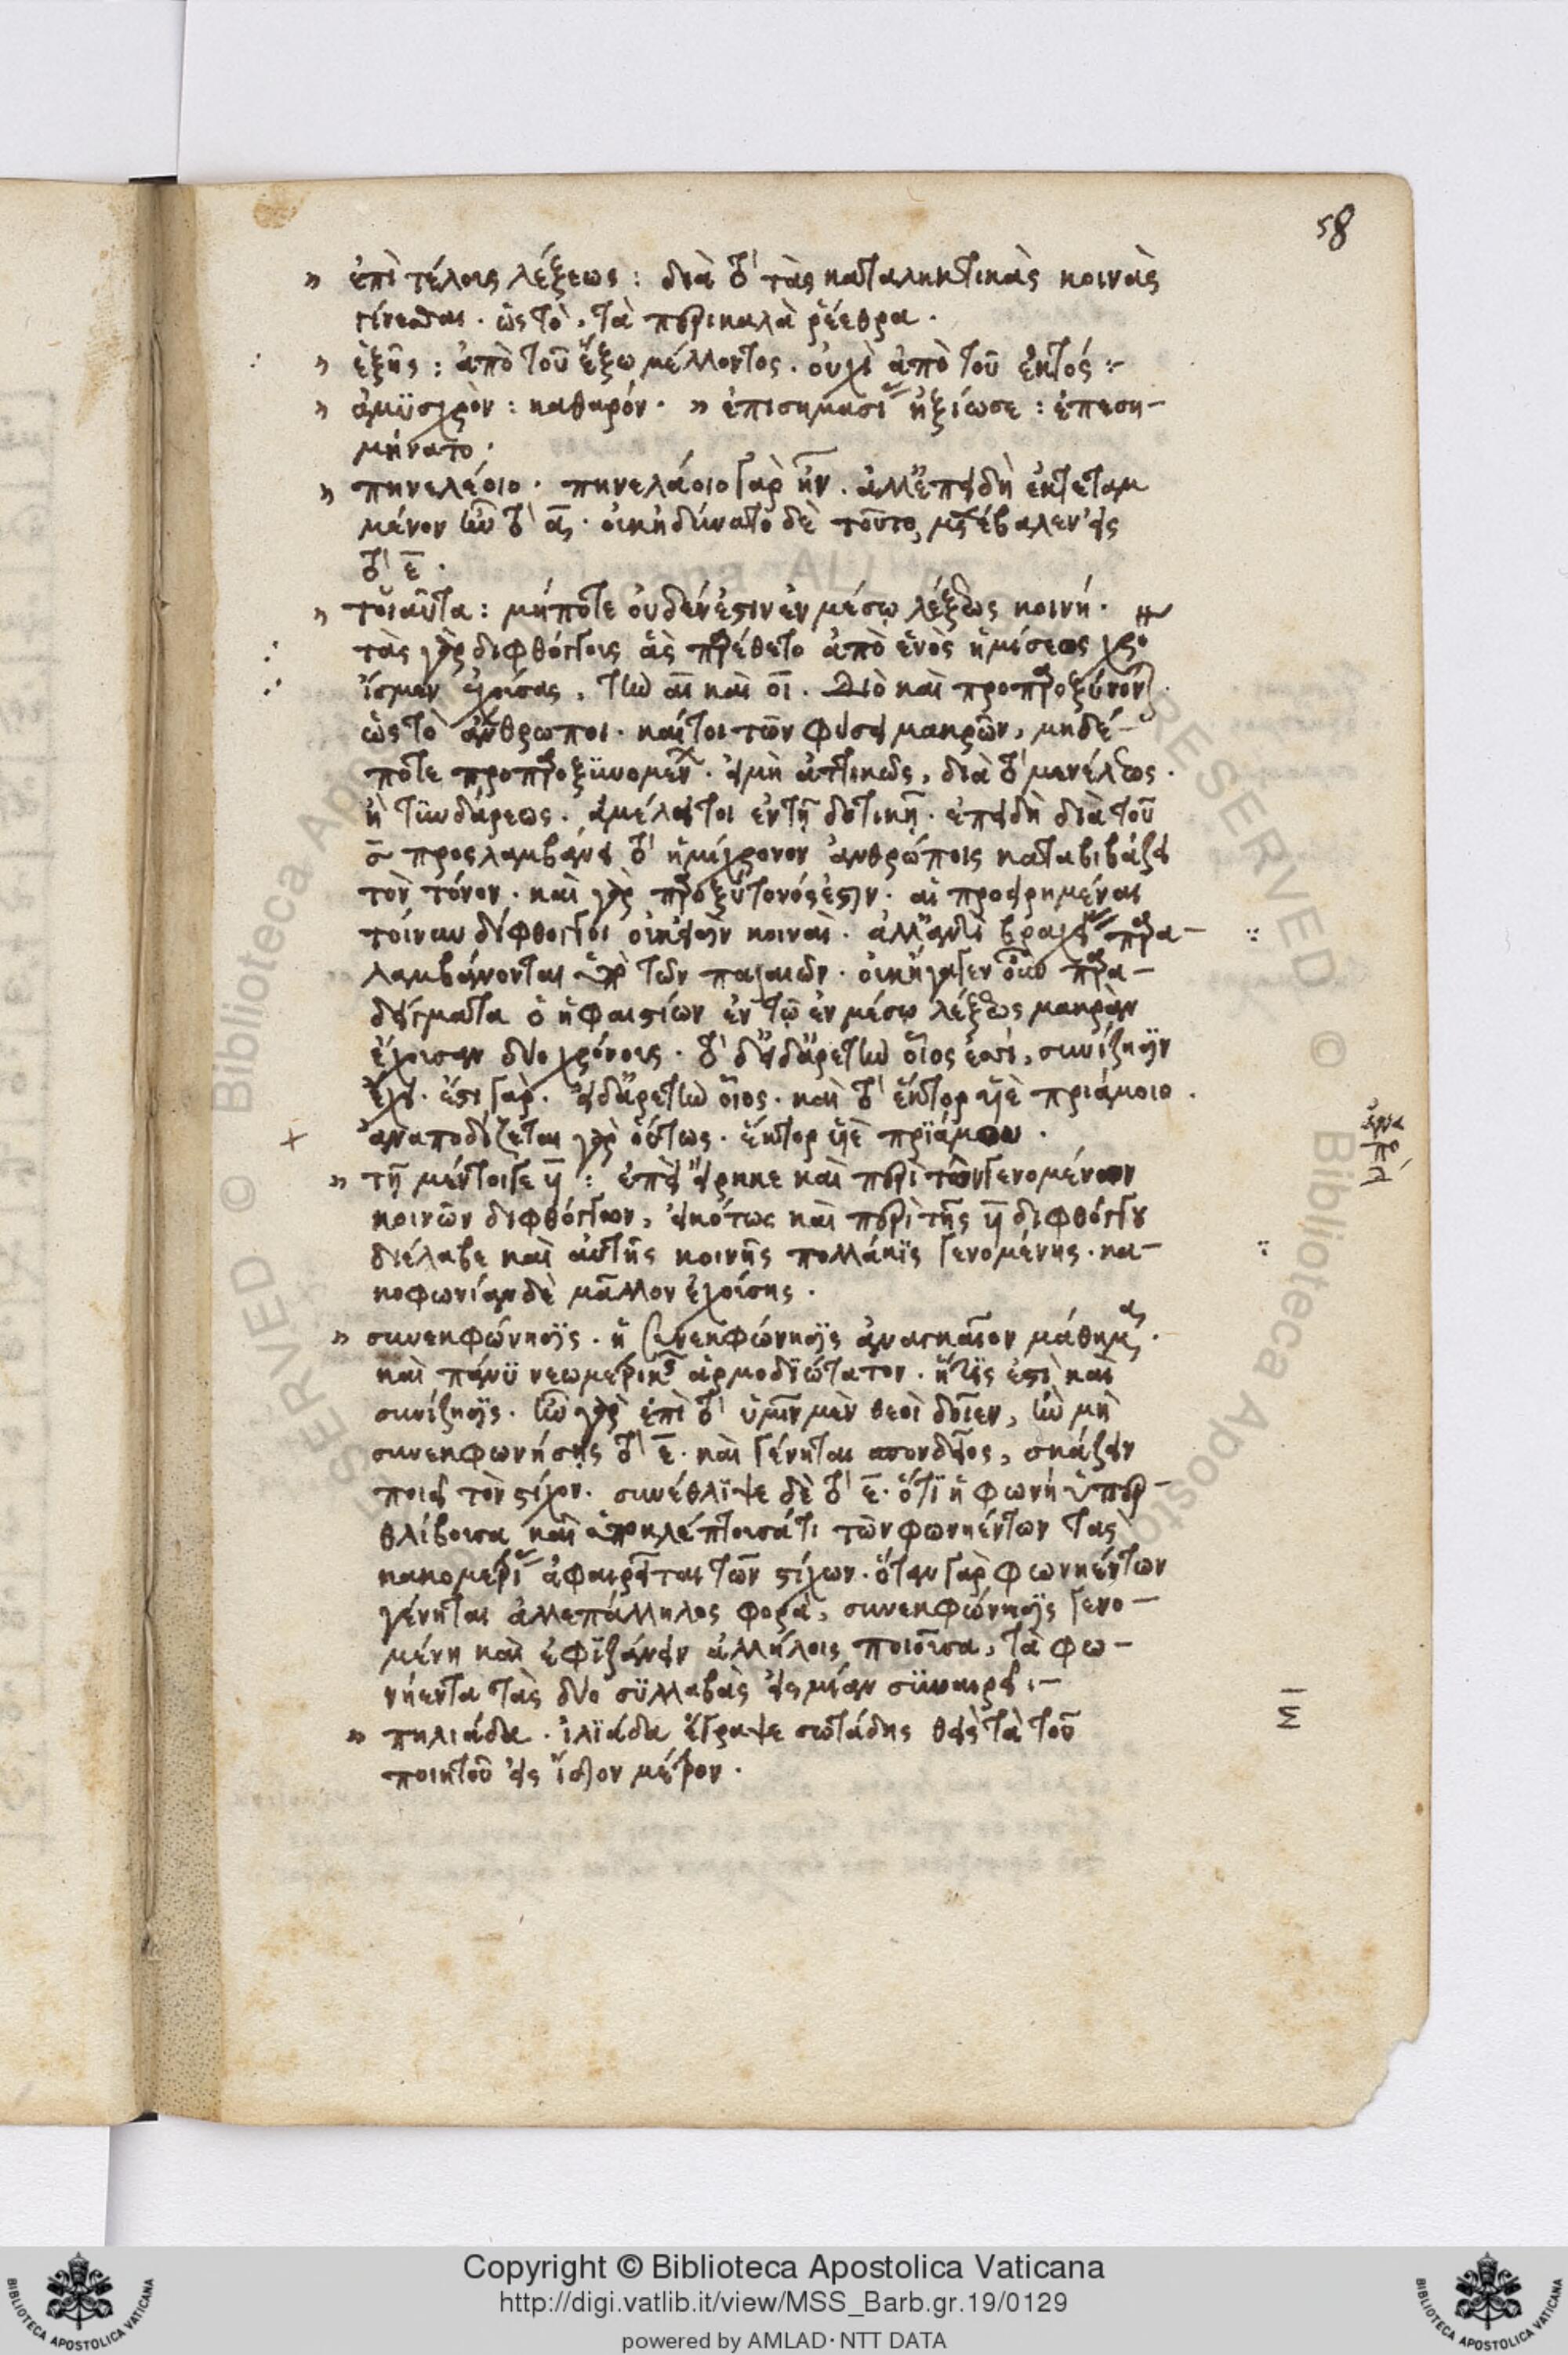 58
» ἐπὶ τέλους λέξεως : διὰ τὸ τὰς καταληκτικὰς κοινὰς
γίνεσθαι · ὡς τὸ, τὰ περικαλὰ ῥέεθρα ·
» ἑξῆς : ἀπὸ τοῦ ἕξω μέλλοντος · οὐχὶ ἀπὸ τοῦ ἐκτός :-
» ἀμυσχρὸν : καθαρόν · » ἐπισημασί ἠξίωσε : ἐπεση-
μήνατο ·
» πηνελέοιο · πηνελάοιο γὰρ ἦν · ἀλλ' ἐπειδὴ ἐκτεταμ
μένον ἦν τὸ ᾱ · οὐκ ἠδύνατο δὲ τοῦτο, μετέβαλεν εἰς
τὸ ε̄ ·
» τοιαῦτα : μήποτε οὐδέν ἐστιν ἐν μέσῳ λέξεως κοινή ·
τὰς γὰρ διφθόγγους ἃς παρέθετο ἀπὸ ἑνὸς ἡμίσεως χρο
ἴσμεν ἐχούσας, τὴν αι καὶ οι · Διὸ καὶ προπαροξύνον
ὡς τὸ ἄνθρωποι · καίτοι τῶν φύσει μακρῶν, μηδέ-
ποτε προπαροξυνομεν · εἰ μὴ ἀττικῶς, διὰ τὸ μενέλεως ·
ἢ τυνδάρεως · ἀμέλει τοι ἐν τῇ δοτικῇ · ἐπειδὴ διὰ τοῦ
σ̄ προσλαμβάνει τὸ ἡμίχρονον ἀνθρώποις καταβιβάζει
τὸν τόνον · καὶ γὰρ παροξύτονός ἐστιν · αἱ προειρημέναι
τοίνυν δίφθογγοι οὐκ εἰσὶν κοιναὶ · ἀλλ' ἀντὶ βραχει παρα-
λαμβάνονται παρὰ τῶν παλαιῶν · οὐκ ἤγαγεν οὖν παρα-
δείγματα ὁ ἡφαιστίων ἐν τῷ ἐν μέσῳ λέξεως μακρὰν
ἔχουσαν δυο χρόνους · τὸ δ' εἰδ' ἀρετὴν οἷος ἐσσὶ, συνίζησιν
ἔχει · ἔστι γὰρ · εἰδ' ἀρετὴν οἷος · καὶ τὸ ἕκτορ υἱὲ πριάμοιο ·
ἀναποδίζεται γὰρ οὕτως · ἕκτορ υἱὲ πριάμου ·
» τῇ μέντοιγε υι : ἐπεὶ εἴρηκε καὶ περὶ τῶν γενομένων
κοινῶν διφθόγγων, εἰκότως καὶ περὶ τῆς υι διφθόγγου
διέλαβε καὶ αὐτῆς κοινῆς πολλάκις γενομένης · κα-
κοφωνίαν δὲ μᾶλλον ἐχούσης ·
» συνεκφώνησις · ἡ συνεκφώνησις ἀναγκαῖον μάθημα ·
καὶ πάνυ νεωμερικ ἁρμοδιώτατον · ἥτις ἐστὶ καὶ
συνίζησις · ἦν γὰρ ἐπὶ τὸ ὑμῖν μὲν θεοὶ δοῖεν, ἢν μὴ
συνεκφωνήσῃς τὸ ε̄ · καὶ γένηται σπονδεῖος, σκάζειν
ποιεῖ τὸν στίχον · συνέθλιψε δὲ τὸ ε̄ · ὅτι ἡ φωνὴ ὑπερ
θλίβουσα καὶ ἀποκλέπτουσά τι τῶν φωνηέντων τὰς
κακομερί ἀφαιρεῖται τῶν στίχων · ὅταν γὰρ φωνηέντων
γένηται ἀλλεπάλληλος φορὰ, συνεκφώνησις γενο-
μένη καὶ ἐφιζάνειν ἀλλήλοις ποιοῦσα, τὰ φω-
νήεντα τὰς δυο συλλαβὰς εἰς μίαν συναιρεῖ :-
» πηλιάδα · ἰλιάδα ἔγραψε σωτάδης θεὶς τὰ τοῦ
ποιητοῦ εἰς ἴδιον μέτρον ·
Copyright © Biblioteca Apostolica Vaticana
http://digi.vatlib.it/view/MSS_Barb.gr.19/0129
powered by AMLAD · NTT DATA